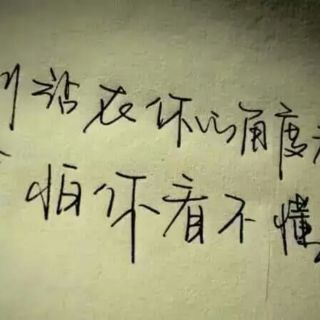 站在你的角度
怕你看不懂